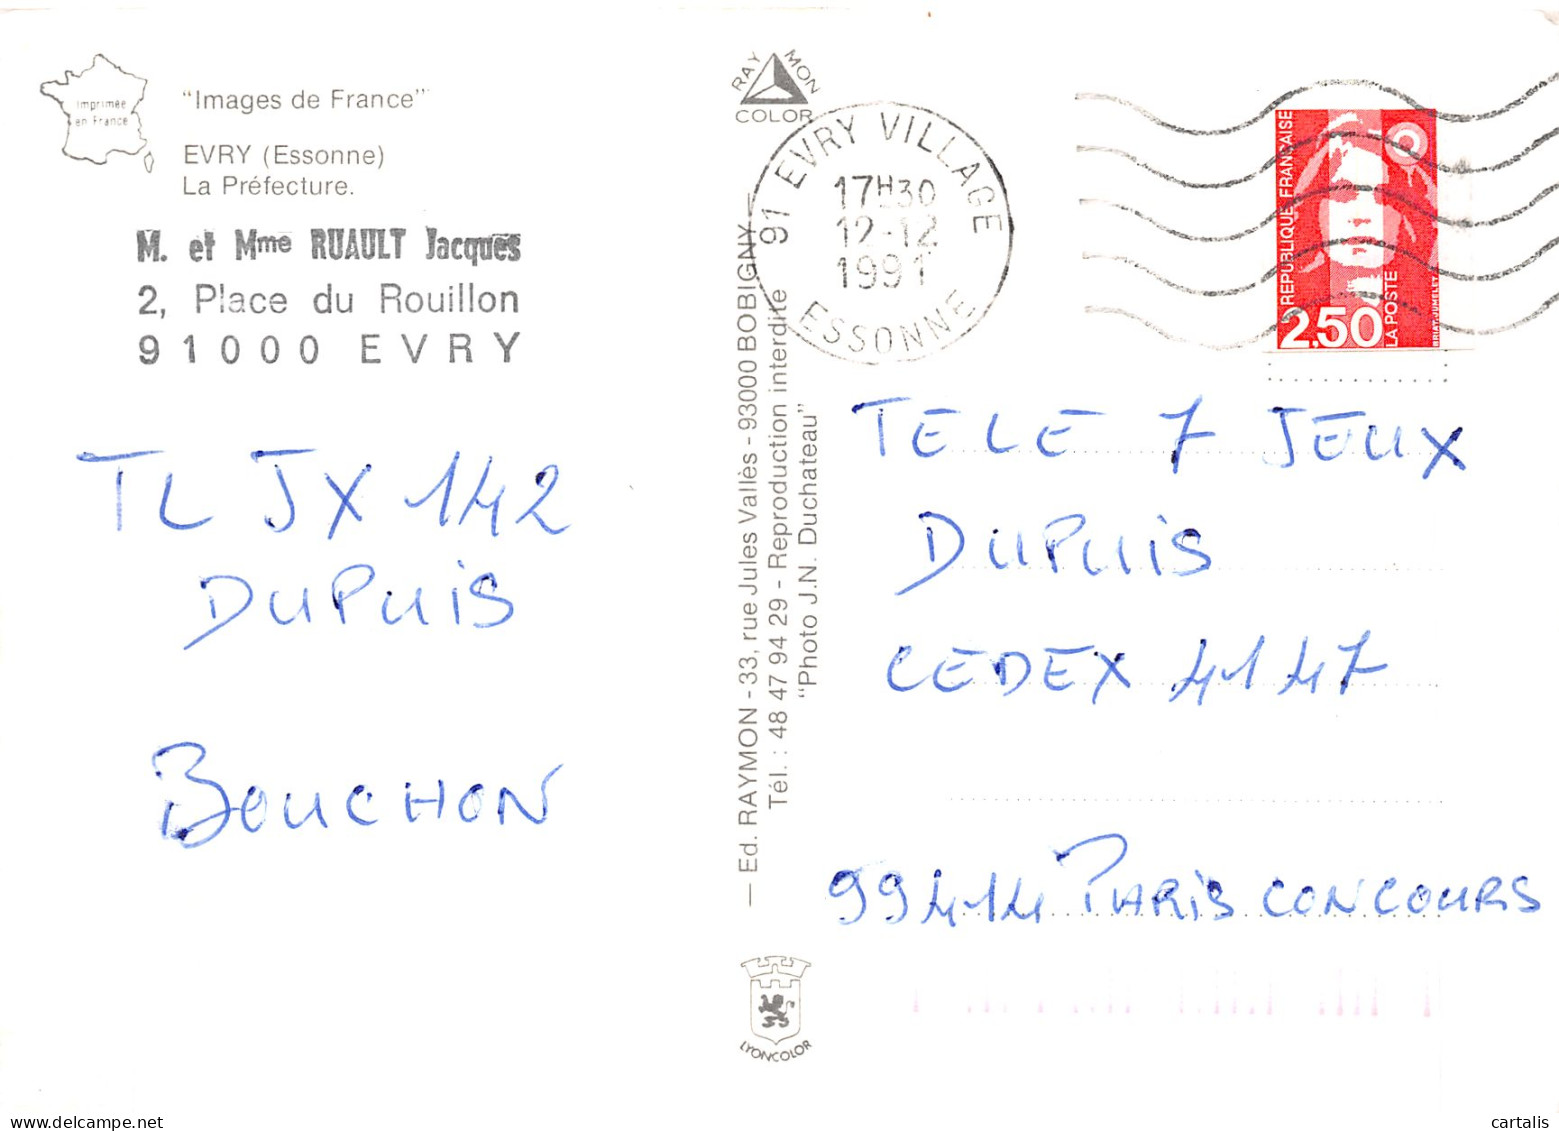 imprimée
en France
"Images de France"
EVRY (Essonne)
La Préfecture.
M. et Mme RUAULT Jacques
2, Place du Rouillon
91000 EVRY
TL JX 142
DUPUIS
BOUCHON
RAYMON
COLOR
— Ed. RAYMON - 33, rue Jules Vallès - 93000 BOBIGNY
Tél. : 48 47 94 29 - Reproduction interdite
"Photo J.N. Duchateau"
LYONCOLOR
91 EVRY VILLAGE
17H30
12-12
1991
ESSONNE
REPUBLIQUE FRANÇAISE
2,50
LA POSTE
BRIAT-JUMELET
TELE 7 JEUX
DUPUIS
CEDEX 4147
99414 PARIS CONCOURS
cartalis